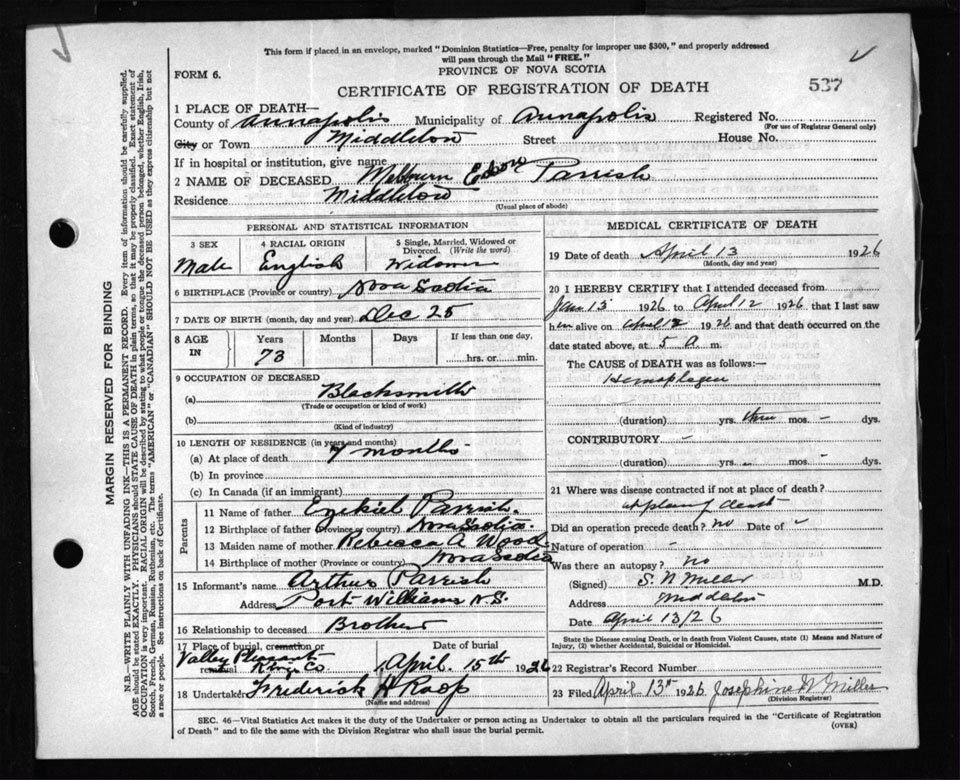 This form if placed in an envelope, marked "Dominion Statistics—Free, penalty for improper use $300," and properly addressed
will pass through the Mail "FREE."
PROVINCE OF NOVA SCOTIA
FORM 6.
CERTIFICATE OF REGISTRATION OF DEATH
537
1 PLACE OF DEATH—
County of Annapolis Municipality of Annapolis Registered No.
(For use of Registrar General only)
City or Town Middleton Street House No.
If in hospital or institution, give name
2 NAME OF DECEASED Melburn Parrish
Residence Middleton
(Usual place of abode)
PERSONAL AND STATISTICAL INFORMATION
3 SEX 4 RACIAL ORIGIN 5 Single, Married, Widowed or
Divorced. (Write the word)
Male English Widower
6 BIRTHPLACE (Province or country) Nova Scotia
7 DATE OF BIRTH (month, day and year) Dec 25
8 AGE IN Years Months Days If less than one day,
73 hrs. or min.
9 OCCUPATION OF DECEASED
(a) Blacksmith
(Trade or occupation or kind of work)
(b)
(Kind of industry)
10 LENGTH OF RESIDENCE (in years and months)
(a) At place of death 7 months
(b) In province
(c) In Canada (if an immigrant)
Parents
11 Name of father Ezekiel Parrish.
12 Birthplace of father (Province or country) Nova Scotia.
13 Maiden name of mother Rebecca A Wood.
14 Birthplace of mother (Province or country) Nova Scotia
15 Informant's name Arthur Parrish
Address Port Williams N.S.
16 Relationship to deceased Brother
17 Place of burial, cremation or removal Date of burial
Valley Pleasant Kings Co. April 15th 1926
18 Undertaker Frederick H Roop
(Name and address)
MEDICAL CERTIFICATE OF DEATH
19 Date of death April 13 1926
(Month, day and year)
20 I HEREBY CERTIFY that I attended deceased from
Jan 13 1926 to April 12 1926 that I last saw
him alive on April 12 1926 and that death occurred on the
date stated above, at 5 a m.
The CAUSE OF DEATH was as follows:—
(duration) yrs. three mos. - dys.
CONTRIBUTORY -
(duration) yrs. mos. - dys.
21 Where was disease contracted if not at place of death?
at place of death
Did an operation precede death? no Date of
Nature of operation -
Was there an autopsy? No
(Signed) S. N Miller M.D.
Address Middleton
Date April 13/26
State the Disease causing Death, or in death from Violent Causes, state (1) Means and Nature of
Injury, (2) whether Accidental, Suicidal or Homicidal.
22 Registrar's Record Number
23 Filed April 13th 1926 Josephine N Miller
(Division Registrar)
SEC. 46—Vital Statistics Act makes it the duty of the Undertaker or person acting as Undertaker to obtain all the particulars required in the "Certificate of Registration
of Death" and to file the same with the Division Registrar who shall issue the burial permit.
(OVER)
MARGIN RESERVED FOR BINDING
N.B.—WRITE PLAINLY WITH UNFADING INK—THIS IS A PERMANENT RECORD. Every item of information should be carefully supplied.
AGE should be stated EXACTLY. PHYSICIANS should STATE CAUSE OF DEATH in plain terms, so that it may be properly classified. Exact statement of
OCCUPATION is very important. RACIAL ORIGIN will be described by stating to what people or tongue the deceased person belonged, whether English, Irish,
Scotch, French, German, Russian, Ruthenian, etc. The terms "AMERICAN" or "CANADIAN" SHOULD NOT BE USED as they express citizenship but not
a race or people. See instructions on back of Certificate.